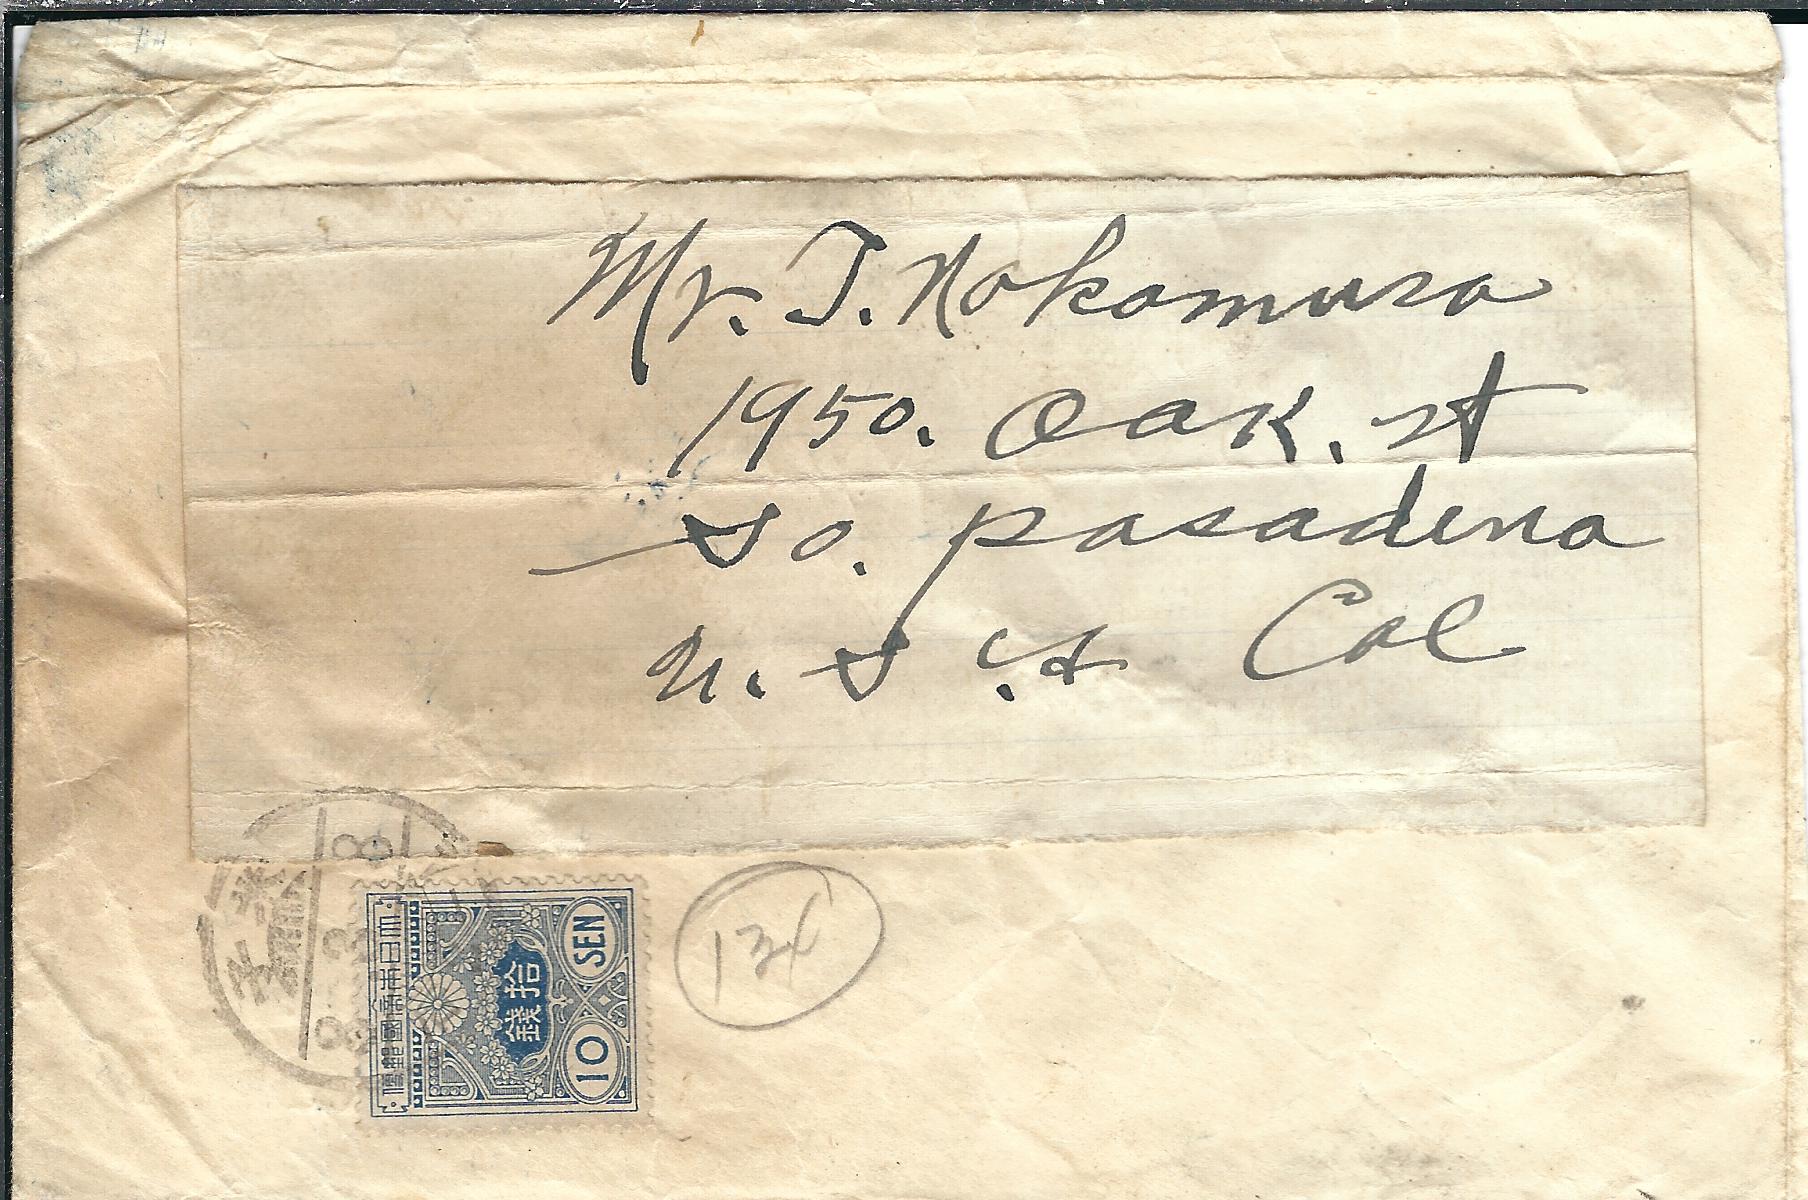 Mr. T. Nakamura
1950. Oak. st
So. Pasadena
U. S. A Cal
大日本帝國郵便
拾錢
SEN
10